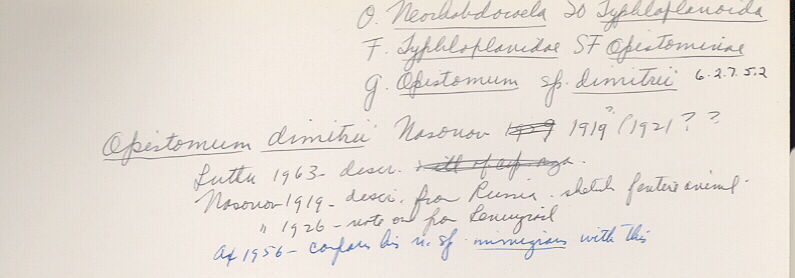 O. Neorhabdocoela SO Typhloplanoida
F. Typhloplanidae SF Opistominae
G. Opistomum sp. dimitrii 6.2.7.5.2
Opistomum dimitrii Nasonov 1919? (1921??
Luther 1963 - descr.
Nasonov 1919 - descr. from Russia. sketch entire animal.
" 1926 - note on from Leningrad
Ax 1956 - compares his n. sp. immigrans with this